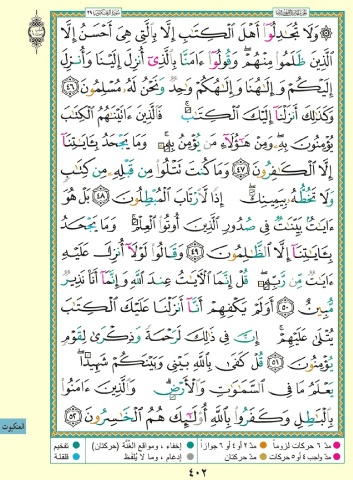 سورة العنكبوت ٢٩
۞ وَلَا تُجَٰدِلُوٓا۟ أَهْلَ ٱلْكِتَٰبِ إِلَّا بِٱلَّتِى هِىَ أَحْسَنُ إِلَّا
ٱلَّذِينَ ظَلَمُوا۟ مِنْهُمْ ۖ وَقُولُوٓا۟ ءَامَنَّا بِٱلَّذِىٓ أُنزِلَ إِلَيْنَا وَأُنزِلَ
إِلَيْكُمْ وَإِلَٰهُنَا وَإِلَٰهُكُمْ وَٰحِدٌ وَنَحْنُ لَهُۥ مُسْلِمُونَ ٤٦
وَكَذَٰلِكَ أَنزَلْنَآ إِلَيْكَ ٱلْكِتَٰبَ ۚ فَٱلَّذِينَ ءَاتَيْنَٰهُمُ ٱلْكِتَٰبَ
يُؤْمِنُونَ بِهِۦ ۖ وَمِنْ هَٰٓؤُلَآءِ مَن يُؤْمِنُ بِهِۦ ۚ وَمَا يَجْحَدُ بِـَٔايَٰتِنَآ
إِلَّا ٱلْكَٰفِرُونَ ٤٧ وَمَا كُنتَ تَتْلُوا۟ مِن قَبْلِهِۦ مِن كِتَٰبٍ
وَلَا تَخُطُّهُۥ بِيَمِينِكَ ۖ إِذًا لَّٱرْتَابَ ٱلْمُبْطِلُونَ ٤٨ بَلْ هُوَ
ءَايَٰتٌۢ بَيِّنَٰتٌ فِى صُدُورِ ٱلَّذِينَ أُوتُوا۟ ٱلْعِلْمَ ۚ وَمَا يَجْحَدُ
بِـَٔايَٰتِنَآ إِلَّا ٱلظَّٰلِمُونَ ٤٩ وَقَالُوا۟ لَوْلَآ أُنزِلَ عَلَيْهِ
ءَايَٰتٌ مِّن رَّبِّهِۦ ۖ قُلْ إِنَّمَا ٱلْـَٔايَٰتُ عِندَ ٱللَّهِ وَإِنَّمَآ أَنَا۠ نَذِيرٌ
مُّبِينٌ ٥٠ أَوَلَمْ يَكْفِهِمْ أَنَّآ أَنزَلْنَا عَلَيْكَ ٱلْكِتَٰبَ
يُتْلَىٰ عَلَيْهِمْ ۚ إِنَّ فِى ذَٰلِكَ لَرَحْمَةً وَذِكْرَىٰ لِقَوْمٍ
يُؤْمِنُونَ ٥١ قُلْ كَفَىٰ بِٱللَّهِ بَيْنِى وَبَيْنَكُمْ شَهِيدًا ۖ
يَعْلَمُ مَا فِى ٱلسَّمَٰوَٰتِ وَٱلْأَرْضِ ۗ وَٱلَّذِينَ ءَامَنُوا۟
بِٱلْبَٰطِلِ وَكَفَرُوا۟ بِٱللَّهِ أُو۟لَٰٓئِكَ هُمُ ٱلْخَٰسِرُونَ ٥٢
العنكبوت
مدّ ٦ حركات لزوماً مدّ ٢ أو ٤ أو ٦ جوازاً إخفاء، ومواقع الغُنّة (حركتان) تفخيم
مدّ واجب ٤ أو ٥ حركات مدّ حركتان إدغام، وما لا يُلفظ قلقلة
٤٠٢